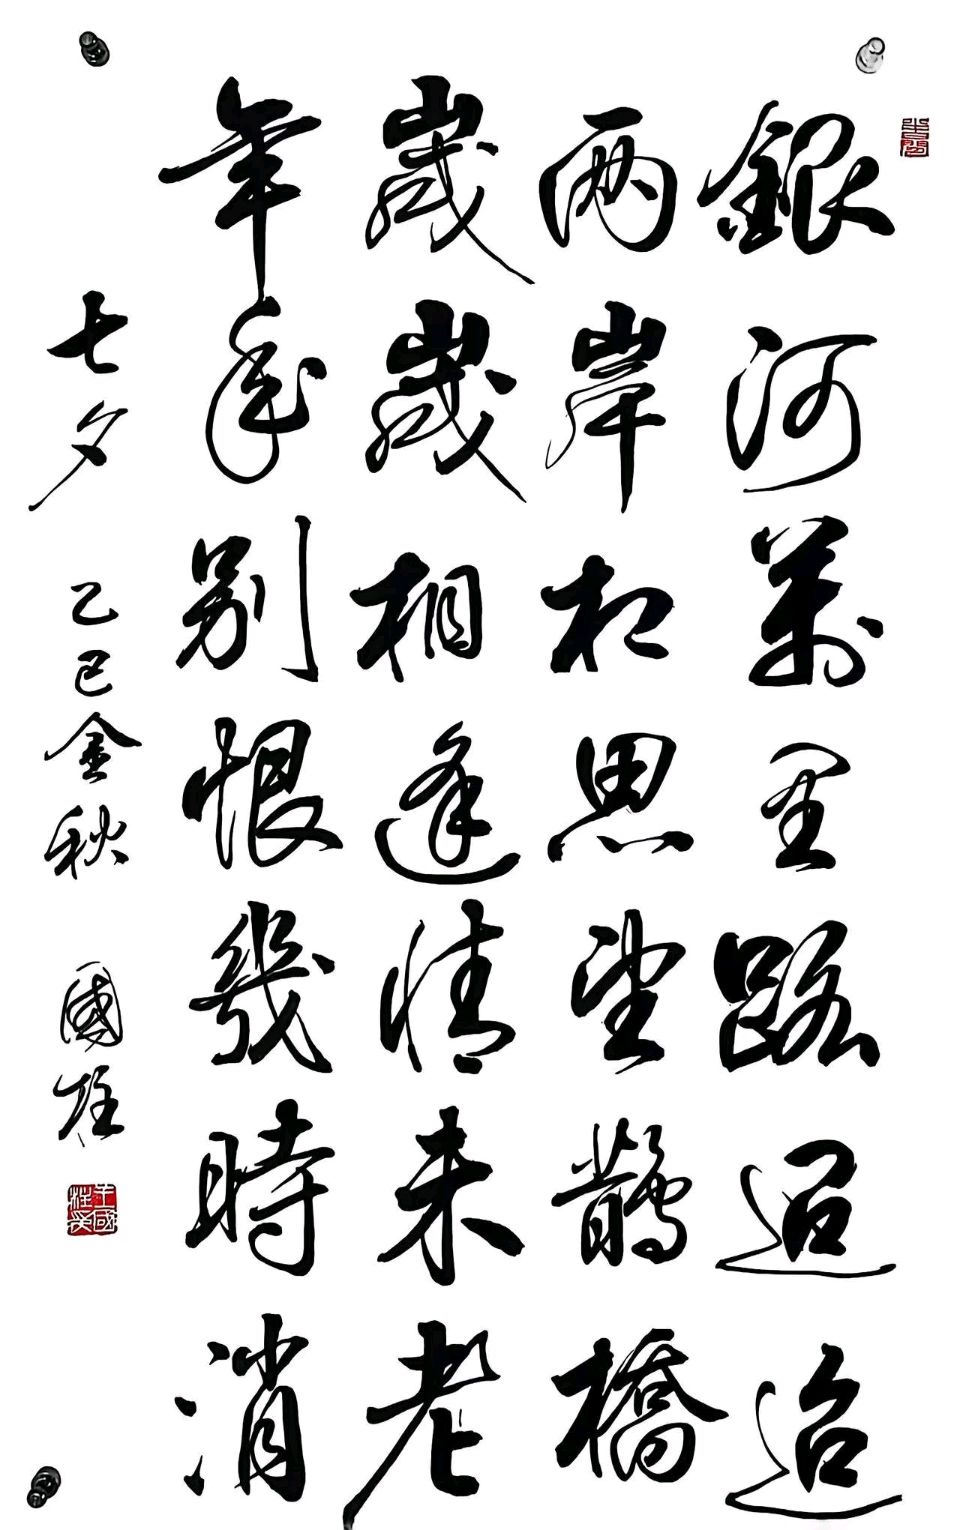 銀河萬里路迢迢
兩岸相思望鵲橋
歲歲相逢情未老
年年別恨幾時消
七夕 乙巳金秋 國柱
王國柱印